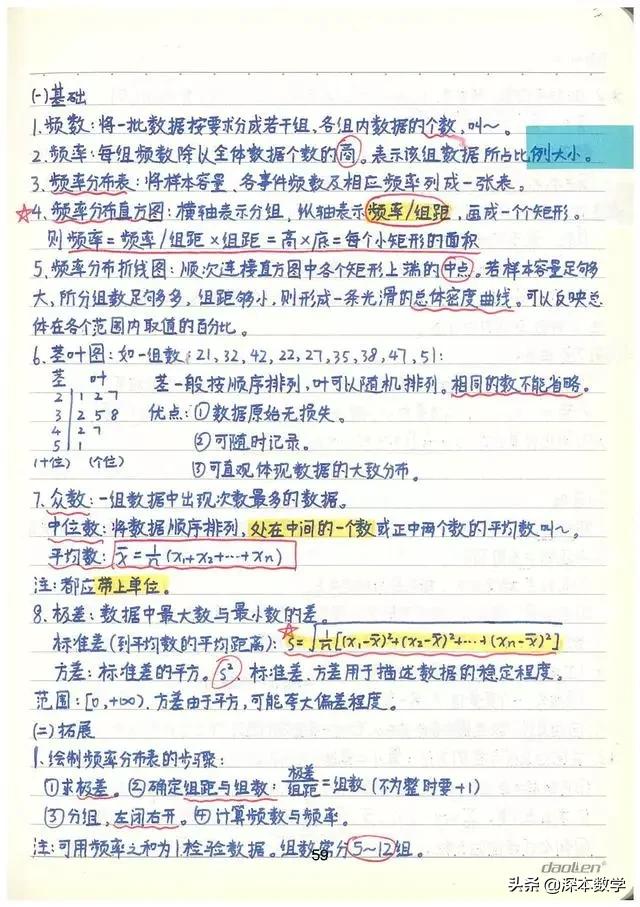 (一)基础
1.频数:将一批数据按要求分成若干组,各组内数据的个数,叫~。
2.频率:每组频数除以全体数据个数的商。表示该组数据所占比例大小。
3.频率分布表:将样本容量、各事件频数及相应频率列成一张表。
☆4.频率分布直方图:横轴表示分组,纵轴表示频率/组距,画成一个个矩形。
则频率=频率/组距×组距=高×底=每个小矩形的面积
5.频率分布折线图:顺次连接直方图中各个矩形上端的中点。若样本容量足够
大,所分组数足够多,组距够小,则形成一条光滑的总体密度曲线。可以反映总
体在各个范围内取值的百分比。
6.茎叶图:如一组数:21,32,42,22,27,35,38,47,51:
茎 叶 茎一般按顺序排列,叶可以随机排列。相同的数不能省略。
2 | 1 2 7
3 | 2 5 8 优点:①数据原始无损失。
4 | 2 7 ②可随时记录。
5 | 1
(十位) (个位) ③可直观体现数据的大致分布。
7.众数:一组数据中出现次数最多的数据。
中位数:将数据顺序排列,处在中间的一个数或正中两个数的平均数叫~。
平均数:x̄=1/n(x₁+x₂+…+xn)
注:都应带上单位。
8.极差:数据中最大数与最小数的差。
标准差(到平均数的平均距离):☆s=√{1/n[(x₁-x̄)²+(x₂-x̄)²+…+(xn-x̄)²]}
方差:标准差的平方。s²、标准差、方差用于描述数据的稳定程度。
范围:[0,+∞).方差由于平方,可能夸大偏差程度。
(二)拓展
1.绘制频率分布表的步骤:
①求极差。②确定组距与组数:极差/组距=组数(不为整时要+1)
③分组,左闭右开。④计算频数与频率。
注:可用频率之和为1检验数据。组数常分5~12组。
59
daolien
头条@深本数学